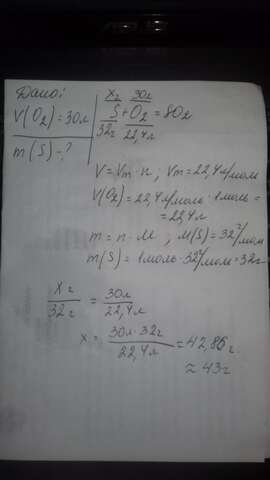 Дано:
V(O₂)=30л
m(S)-?
Xг 30л
S+O₂=SO₂
32г 22,4л
V=Vm·n; Vm=22,4л/моль
V(O₂)=22,4л/моль·1моль=
=22,4л
m=n·M; M(S)=32г/моль
m(S)=1моль·32г/моль=32г
Xг/32г = 30л/22,4л
x= 30л·32г/22,4л =42,86г
≈43г